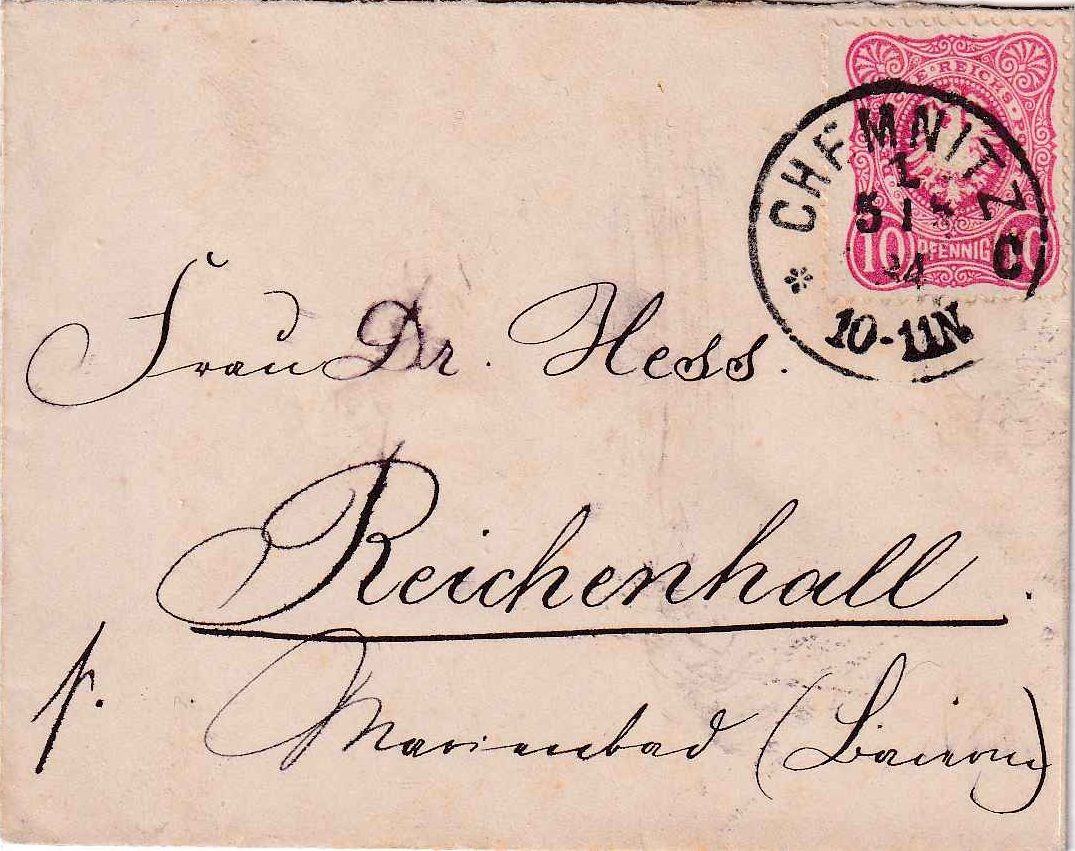 REICHS
10 PFENNIG
CHEMNITZ
I
5 1
84
C
* 10-11N
Frau Dr. Hess.
Reichenhall.
Marienbad (Baiern)